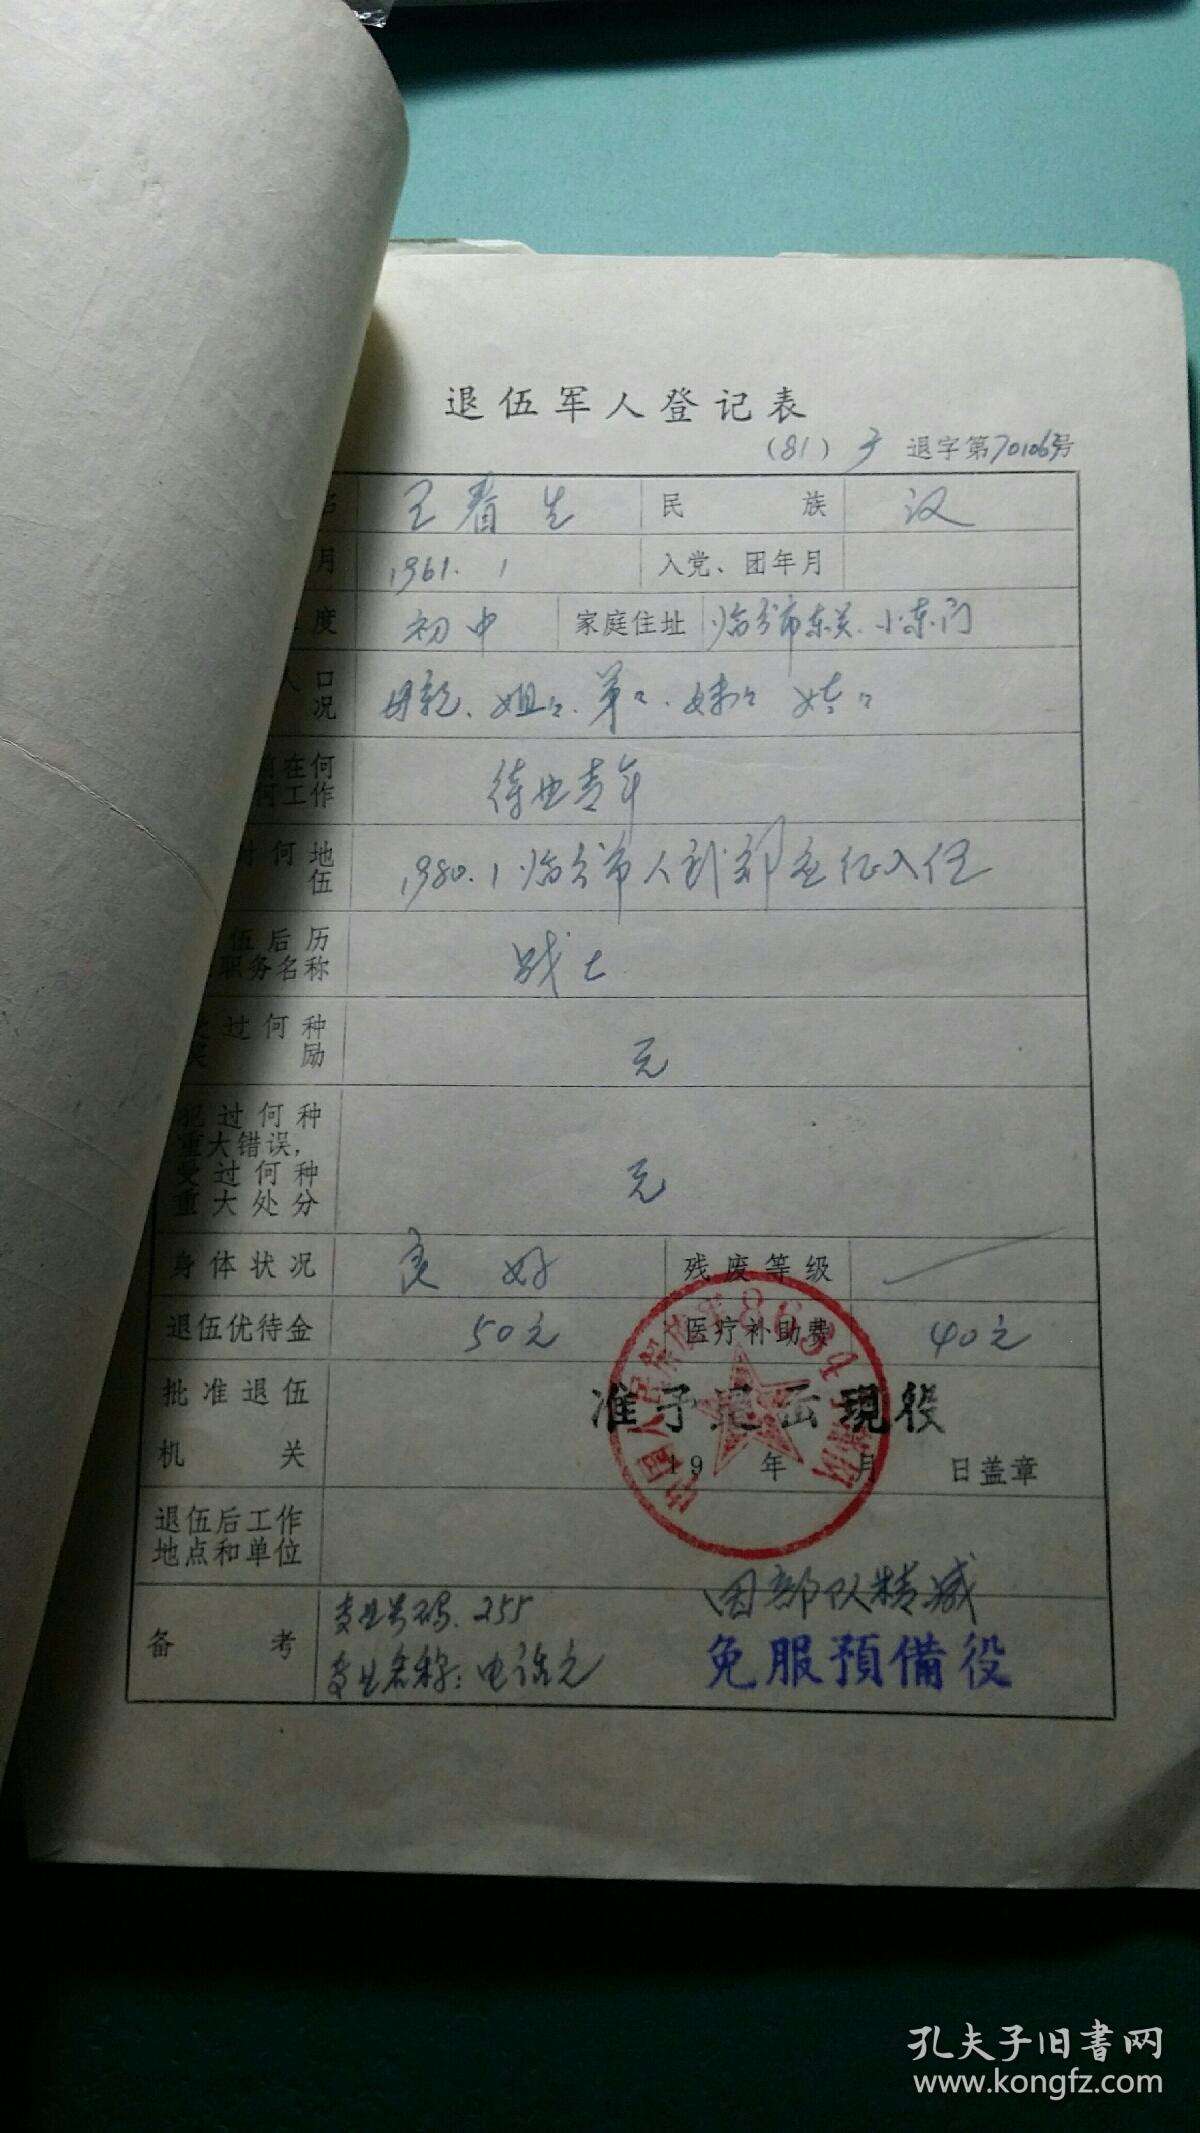 退伍军人登记表
(81) 退字第70106号
名 王春生 民族 汉
月 1961.1 入党、团年月
度 初中 家庭住址 临汾市东关.小东门
人口
况 母亲、姐々、弟々、妹々
前在何
何工作 待业青年
时何地
伍 1980.1 临汾市人武部应征入伍
伍后历
职务名称 战士
受过何种
奖励 无
犯过何种
重大错误,
受过何种
重大处分 无
身体状况 良好 残废等级
退伍优待金 50元 医疗补助费 40元
中国人民解放军86341部队
批准退伍
机关
准予退出現役
19 年 月 日盖章
退伍后工作
地点和单位
备考
专业号码.255
专业名称:电话兵
因部队精减
免服預備役
孔夫子旧書网
www.kongfz.com